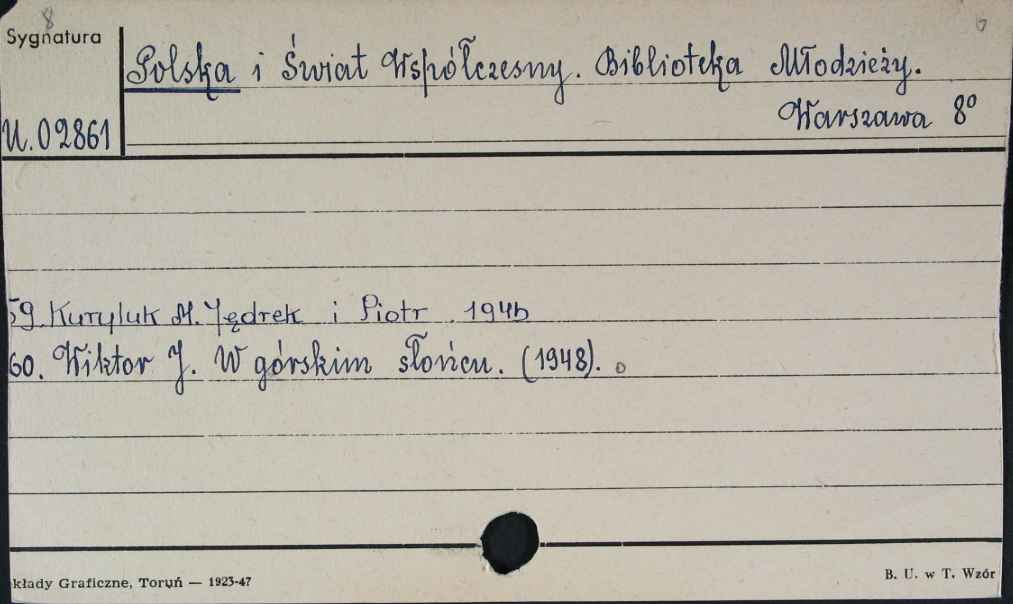 8
Sygnatura
U.02861
Polska i Świat Współczesny. Biblioteka Młodzieży.
Warszawa 8º
59. Kuryluk M. Jędrek i Piotr. 1946
60. Wiktor J. W górskim słońcu. (1948). o
kłady Graficzne, Toruń — 1923-47
B. U. w T. Wzór